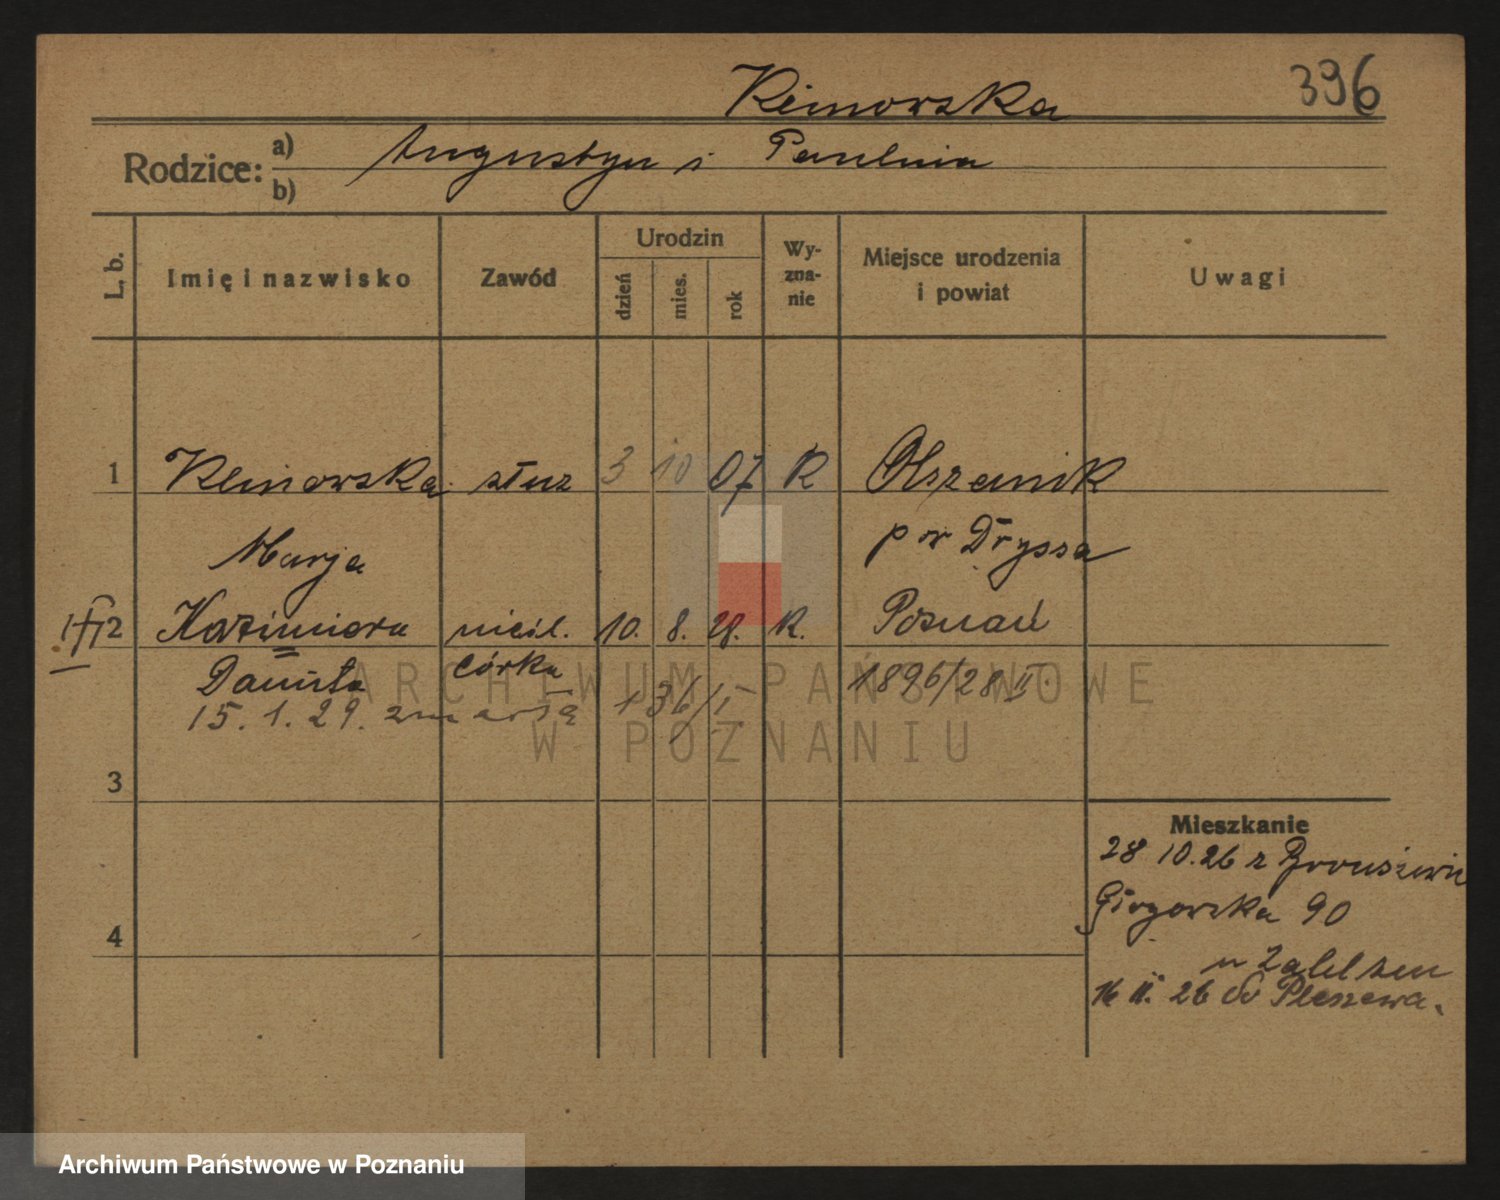 396
Klimowska
Rodzice: a) Augustyn i Paulina
b)
L. b.
Imię i nazwisko
Zawód
Urodzin
dzień
mies.
rok
Wy-
zna-
nie
Miejsce urodzenia
i powiat
Uwagi
1 Klimowska służ 3 10 07 R Olszanik
Marja pow Dryssa
2 Kazimiera nieśl. 10. 8. 28. R. Poznań
Danuta córka 1896/28 II.
15. 1. 29. zmarła 136/I
3
4
Mieszkanie
28 10.26 z
90
u
16 II. 26 do Pleszewa.
ARCHIWUM PAŃSTWOWE
W POZNANIU
Archiwum Państwowe w Poznaniu